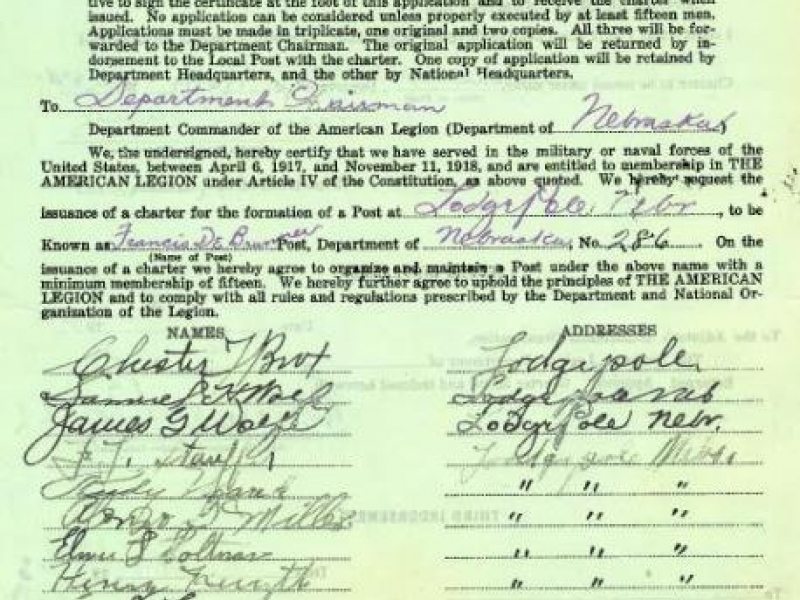 tive to sign the certificate at the foot of this application and to receive the charter when
issued. No application can be considered unless properly executed by at least fifteen men.
Applications must be made in triplicate, one original and two copies. All three will be for-
warded to the Department Chairman. The original application will be returned by in-
dorsement to the Local Post with the charter. One copy of application will be retained by
Department Headquarters, and the other by National Headquarters.
To Department Chairman
Department Commander of the American Legion (Department of Nebraska)
We, the undersigned, hereby certify that we have served in the military or naval forces of the
United States, between April 6, 1917, and November 11, 1918, and are entitled to membership in THE
AMERICAN LEGION under Article IV of the Constitution, as above quoted. We hereby request the
issuance of a charter for the formation of a Post at Lodgepole, Nebr, to be
Known as Francis De Post, Department of Nebraska, No. 286. On the
(Name of Post)
issuance of a charter we hereby agree to organize and maintain a Post under the above name with a
minimum membership of fifteen. We hereby further agree to uphold the principles of THE AMERICAN
LEGION and to comply with all rules and regulations prescribed by the Department and National Or-
ganization of the Legion.
NAMES ADDRESSES
Chester Lodgepole
Samuel Lodgepole Neb
James G Wolfe LodgePole Nebr.
F. J. Lodgepole Nebr.
" " "
Alonzo Miller " " "
Elmer " " "
Henry " " "